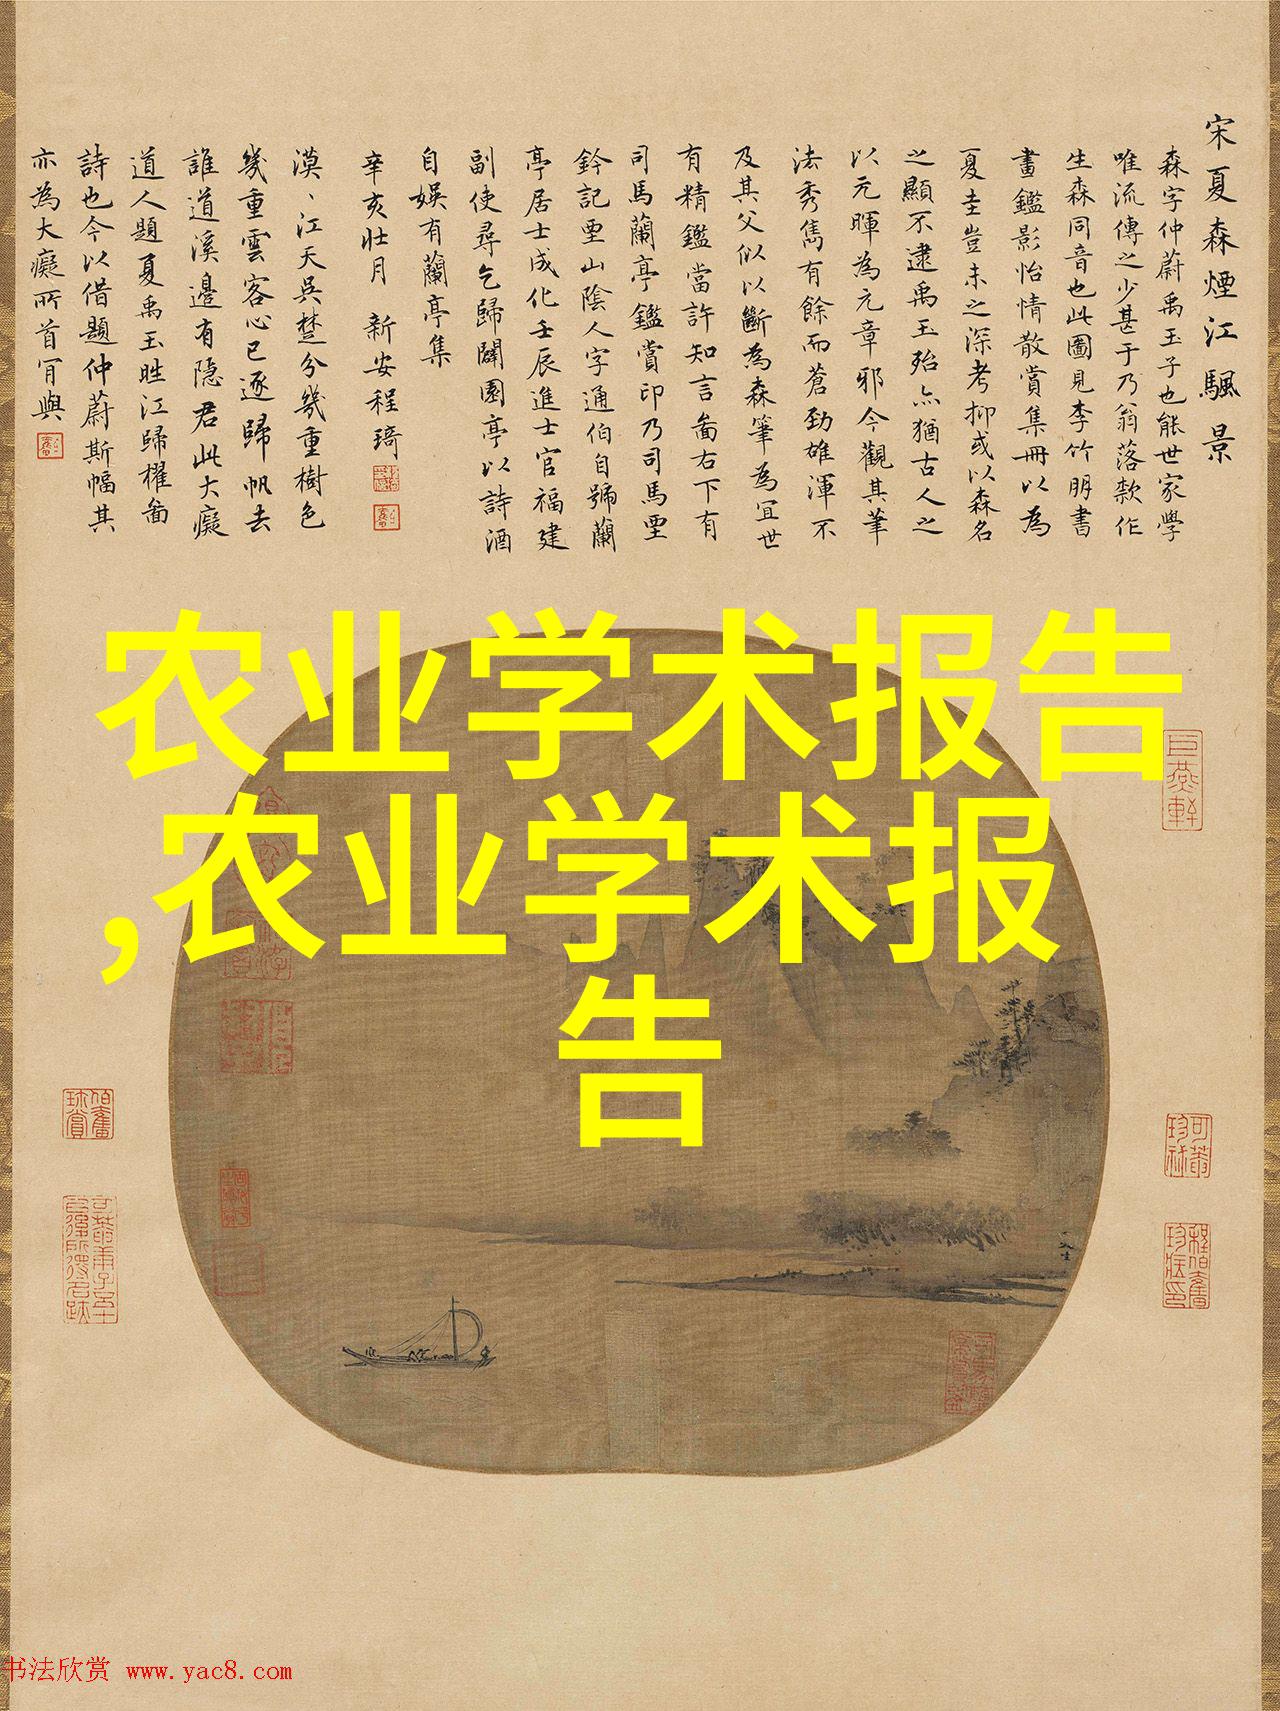 宋夏森煙江颿景
森字仲蔚禹玉子也能世家學
唯流傳之少甚于乃翁落欵作
生森同音也此圖見李竹朋書
畫鑑影怡情散賞集冊以為
夏圭豈未之深考抑或以森名
之顯不逮禹玉殆亦猶古人之
以元暉為元章邪今觀其筆
法秀雋有餘而蒼勁雄渾不
及其父似以斷為森筆為宜世
有精鑑當許知言畵右下有
司馬蘭亭鑑賞印乃司馬堊
鈐記堊山陰人字通伯自號蘭
亭居士成化壬辰進士官福建
副使尋乞歸闢園亭以詩酒
自娛有蘭亭集
辛亥壯月 新安程琦
漠、江天吳楚分幾重樹色
幾重雲客心已逐歸帆去
誰道溪邊有隱君此大癡
道人題夏禹玉晴江歸櫂畵
詩也今以借題仲蔚斯幅其
亦為大癡所首肎與
农业学术报告
,农业学术报
告
书法欣赏 www.yac8.com